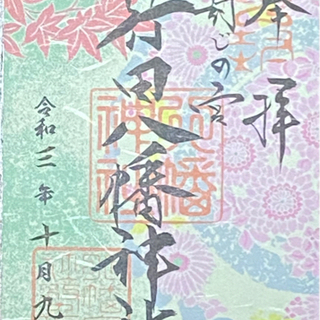 奉拝
封じの宮
田八幡神社
令和三年十月九